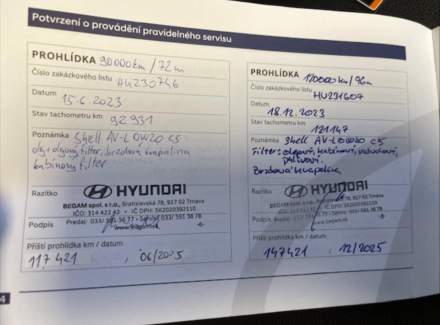 Potvrzení o provádění pravidelného servisu
PROHLÍDKA 90000km /72m
Číslo zakázkového listu HU230746
Datum 15.6.2023
Stav tachometru km 92931
Poznámka Shell AV-L 0W20 C5
olej, olejový filter, brzdová kvapalina
kabínový filter
Razítko HYUNDAI
BEGAM spol. s r.o., Bratislavská 78, 917 02 Trnava
IČO: 314 422 42 • IČ DPH: SK2020392110
Podpis
Příští prohlídka km / datum
117421 06/2025
PROHLÍDKA 120000km/96m
Číslo zakázkového listu HU231607
Datum 18.12.2023
Stav tachometru km 121147
Poznámka Shell AV-L 0W20 C5
Filter: olejový, kabínový, vzduchový,
palivový.
Brzdová kvapalina
Razítko HYUNDAI
BEGAM spol. s r.o., Bratislavská 78, 917 02 Trnava
Podpis
Příští prohlídka km / datum
147421 12/2025
4